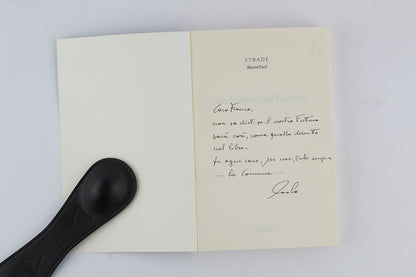 STRADE
Caro Franco,
non so dirti se il nostro Futuro
sarà così, come quello descritto
nel libro -
In ogni caso, per noi, vale sempre
--- la Comune ---
Paolo